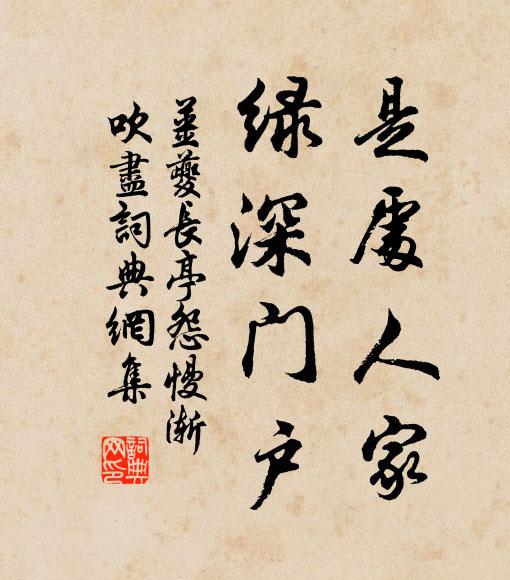 是處人家
綠深門戶
姜夔長亭怨慢漸
吹盡詞典網集
詞典網印